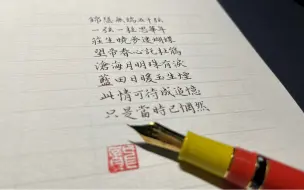 錦瑟無端五十弦
一弦一柱思華年
莊生曉夢迷蝴蝶
望帝春心託杜鵑
滄海月明珠有淚
藍田日暖玉生煙
此情可待成追憶
只是當時已惘然